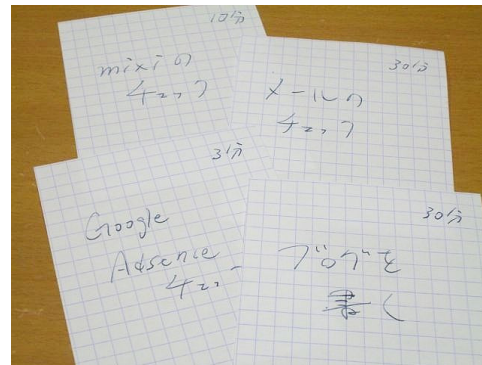 10分
mixiの
チェック
30分
メールの
チェック
3分
Google
Adsence
チェッ
30分
ブログを
書く